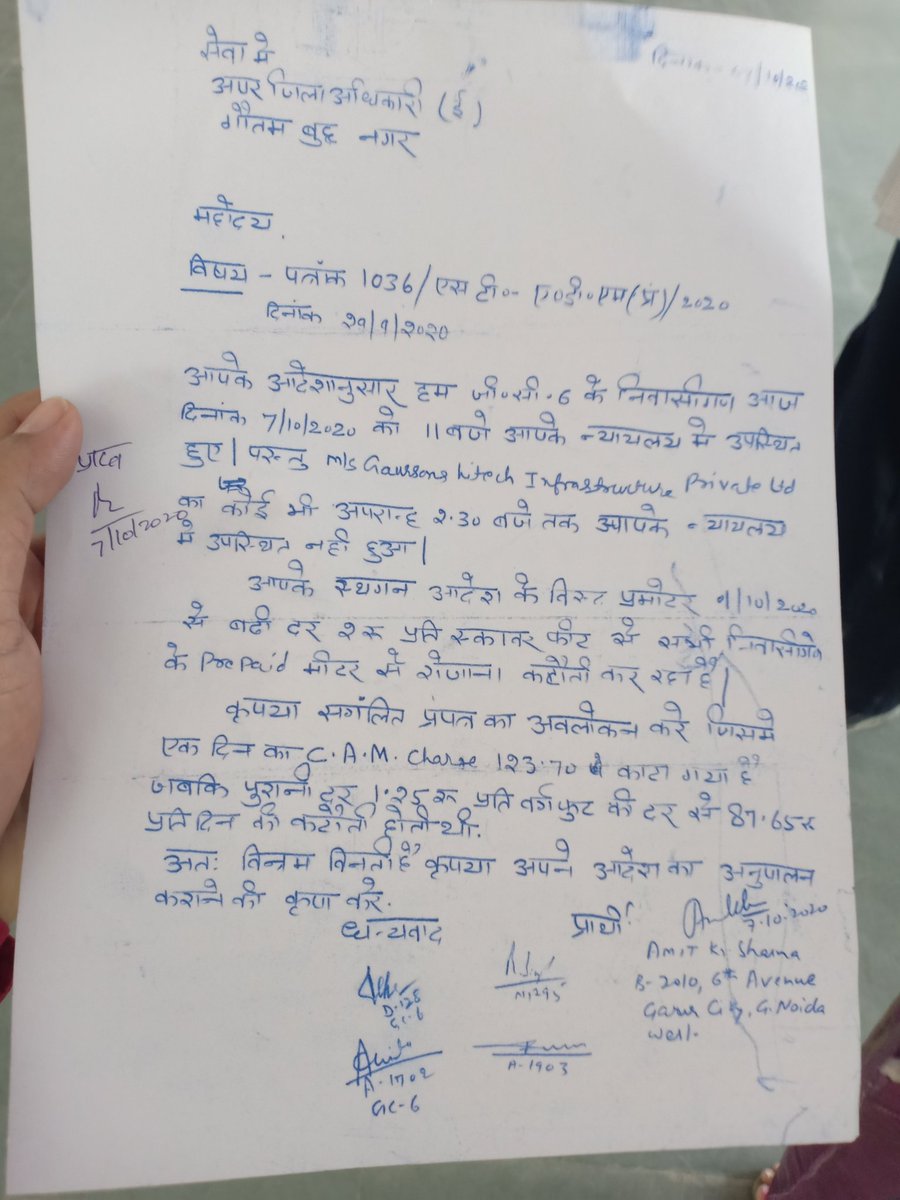 दिनांक - 07/10/202
सेवा मे
अपर जिला अधिकारी (ई)
गौतम बुद्ध नगर
महोदय,
विषय - पत्रांक 1036/एस टी०- ए०डी०एम(प्र)/2020
दिनांक २९/९/२०२०
आपके आदेशानुसार हम जी०सी०6 के निवासीगण आज
दिनांक 7/10/2020 को 11 बजे आपके न्यायलय मे उपस्थित
हुए। परन्तु M/s Gaursons Hitech Infrastructure Private Ltd
का कोई भी अपरान्ह २.30 बजे तक आपके न्यायलय
मे उपस्थित नही हुआ।
आपके स्थगन आदेश के विरुद प्रमोटर /10/२०२०
से बढी दर २रू प्रति स्कावर फीट से सभी निवासीगणो
के Prepaid मीटर से रोजाना कटौती कर रहा है।
कृपया सगंलित प्रंपत्र का अवलोकन करे जिसमे
एक दिन का C.A.M. Charge 123.70 काटा गया है
जबकि पुरानी दर 1.25 रू प्रति वर्ग फुट की दर से 87.65रू
प्रतिदिन की कटौती होती थी.
अतः विन्रम विनती है कृपया अपने आदेश का अनुपालन
कराने की कृपा करे.
धन्यवाद
प्रार्थी
7.10.2020
Amit K. Sharma
B-2010, 6th Avenue
Gaur City, G. Noida
West.
D-128
GC-6
A-1702
GC-6
A-1903
प्राप्त
7/10/2020